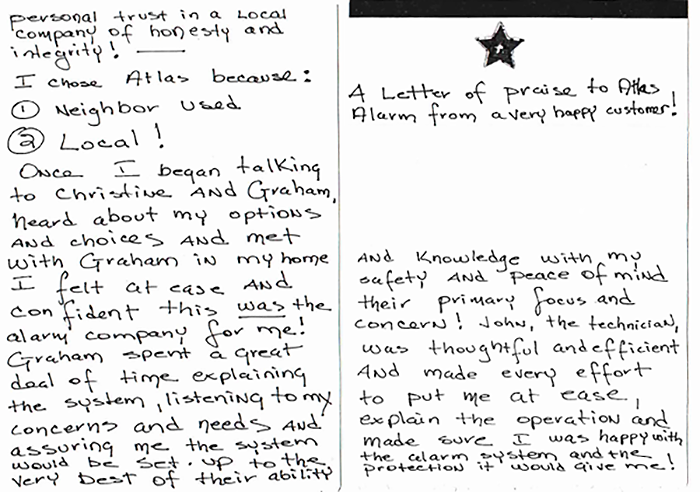 personal trust in a Local
company of honesty and
integrity!
I chose Atlas because:
① Neighbor used
② Local!
Once I began talking
to Christine AND Graham,
heard about my options
AND choices AND met
with Graham in my home
I felt at ease AND
confident this was the
alarm company for me!
Graham spent a great
deal of time explaining
the system, listening to my
concerns and needs AND
assuring me the system
would be set-up to the
very best of their ability
A Letter of praise to Atlas
Alarm from a very happy customer!
AND Knowledge with my
safety AND peace of mind
their primary focus and
concern! John, the technician,
was thoughtful and efficient
AND made every effort
to put me at ease,
explain the operation and
made sure I was happy with
the alarm system and the
protection it would give me!